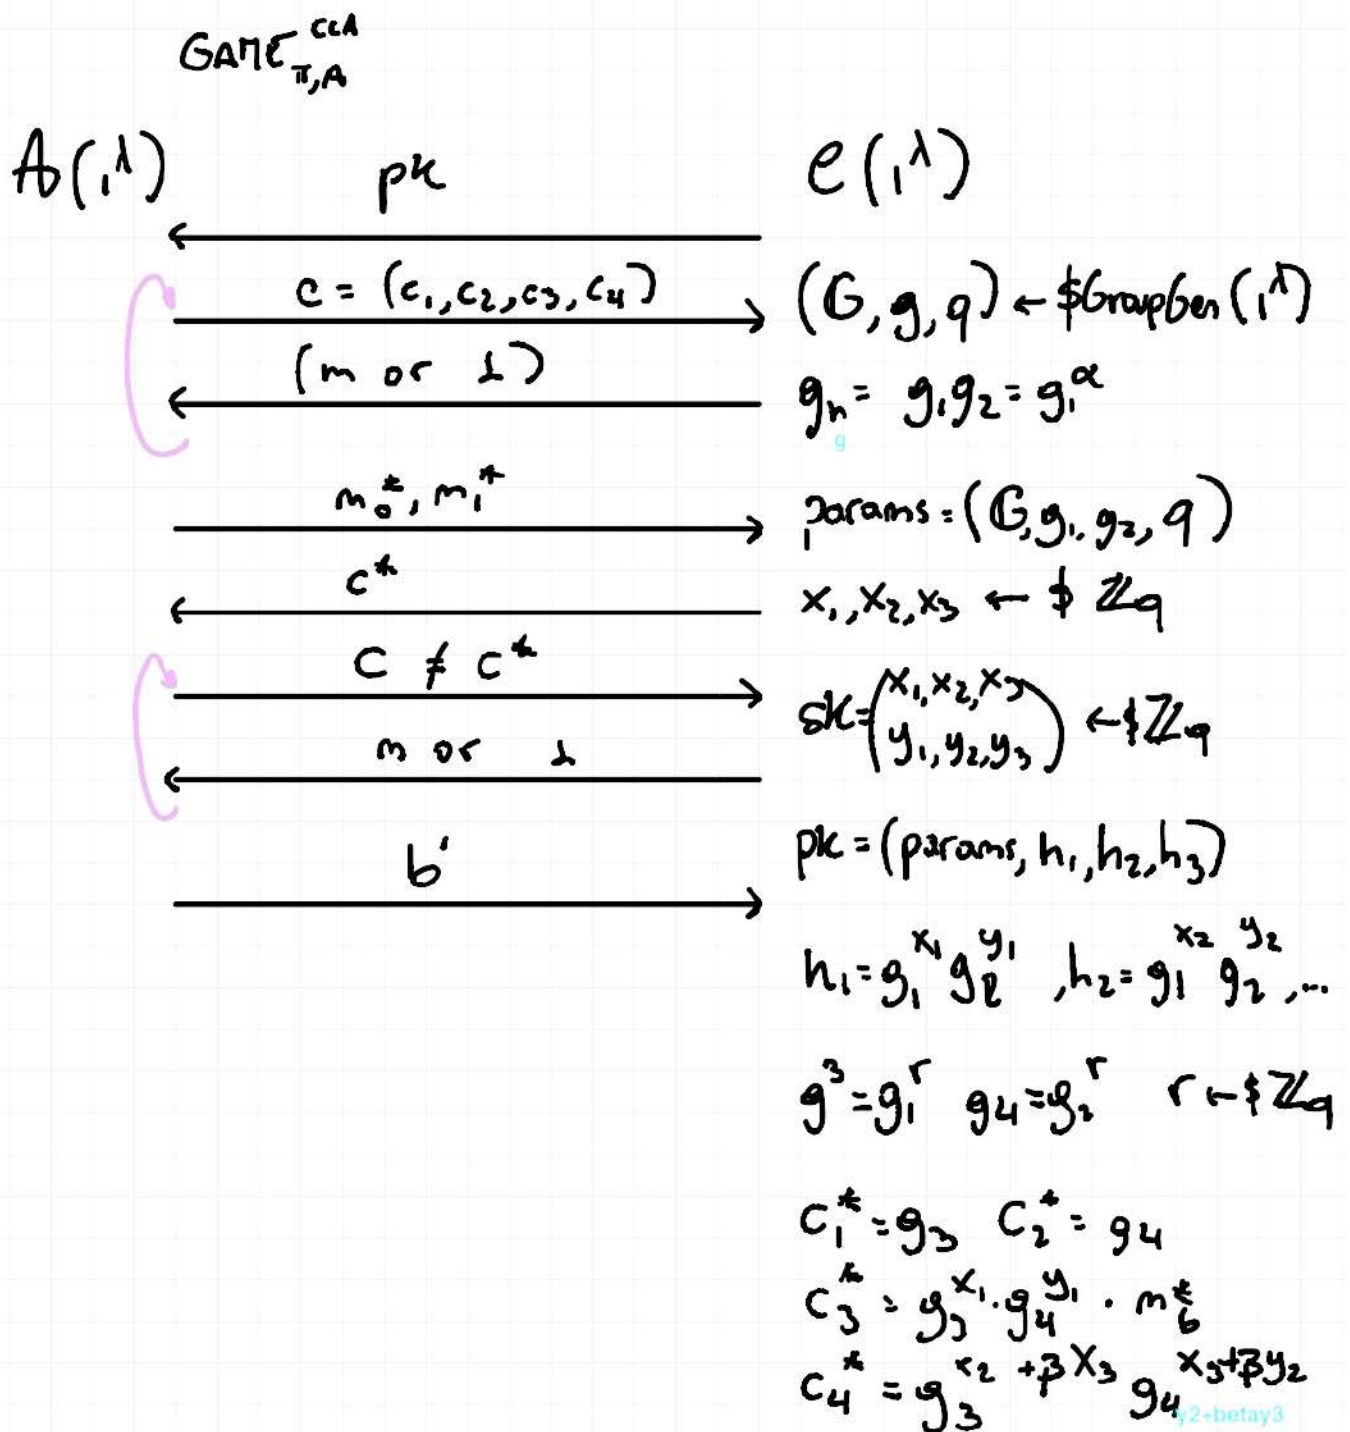 GAME^{CCA}_{π,A}
A(1^λ) pk C(1^λ)
c = (c₁, c₂, c₃, c₄) (G, g, q) ← $GroupGen(1^λ)
(m or ⊥) gₙ = g₁g₂ = g₁^α
g
m₀*, m₁* params = (G, g₁, g₂, q)
c* x₁, x₂, x₃ ← $ ℤq
C ≠ c* sk = (x₁, x₂, x₃
y₁, y₂, y₃) ← $ℤq
m or ⊥
b' pk = (params, h₁, h₂, h₃)
h₁ = g₁^{x₁} g₂^{y₁}, h₂ = g₁^{x₂} g₂^{y₂}, ...
g³ = g₁^r g₄ = g₂^r r ← $ ℤq
c₁* = g₃ C₂* = g₄
c₃* = g₃^{x₁} · g₄^{y₁} · m_b*
c₄* = g₃^{x₂ + βx₃} g₄^{x₃ + βy₂}
y2+betay3